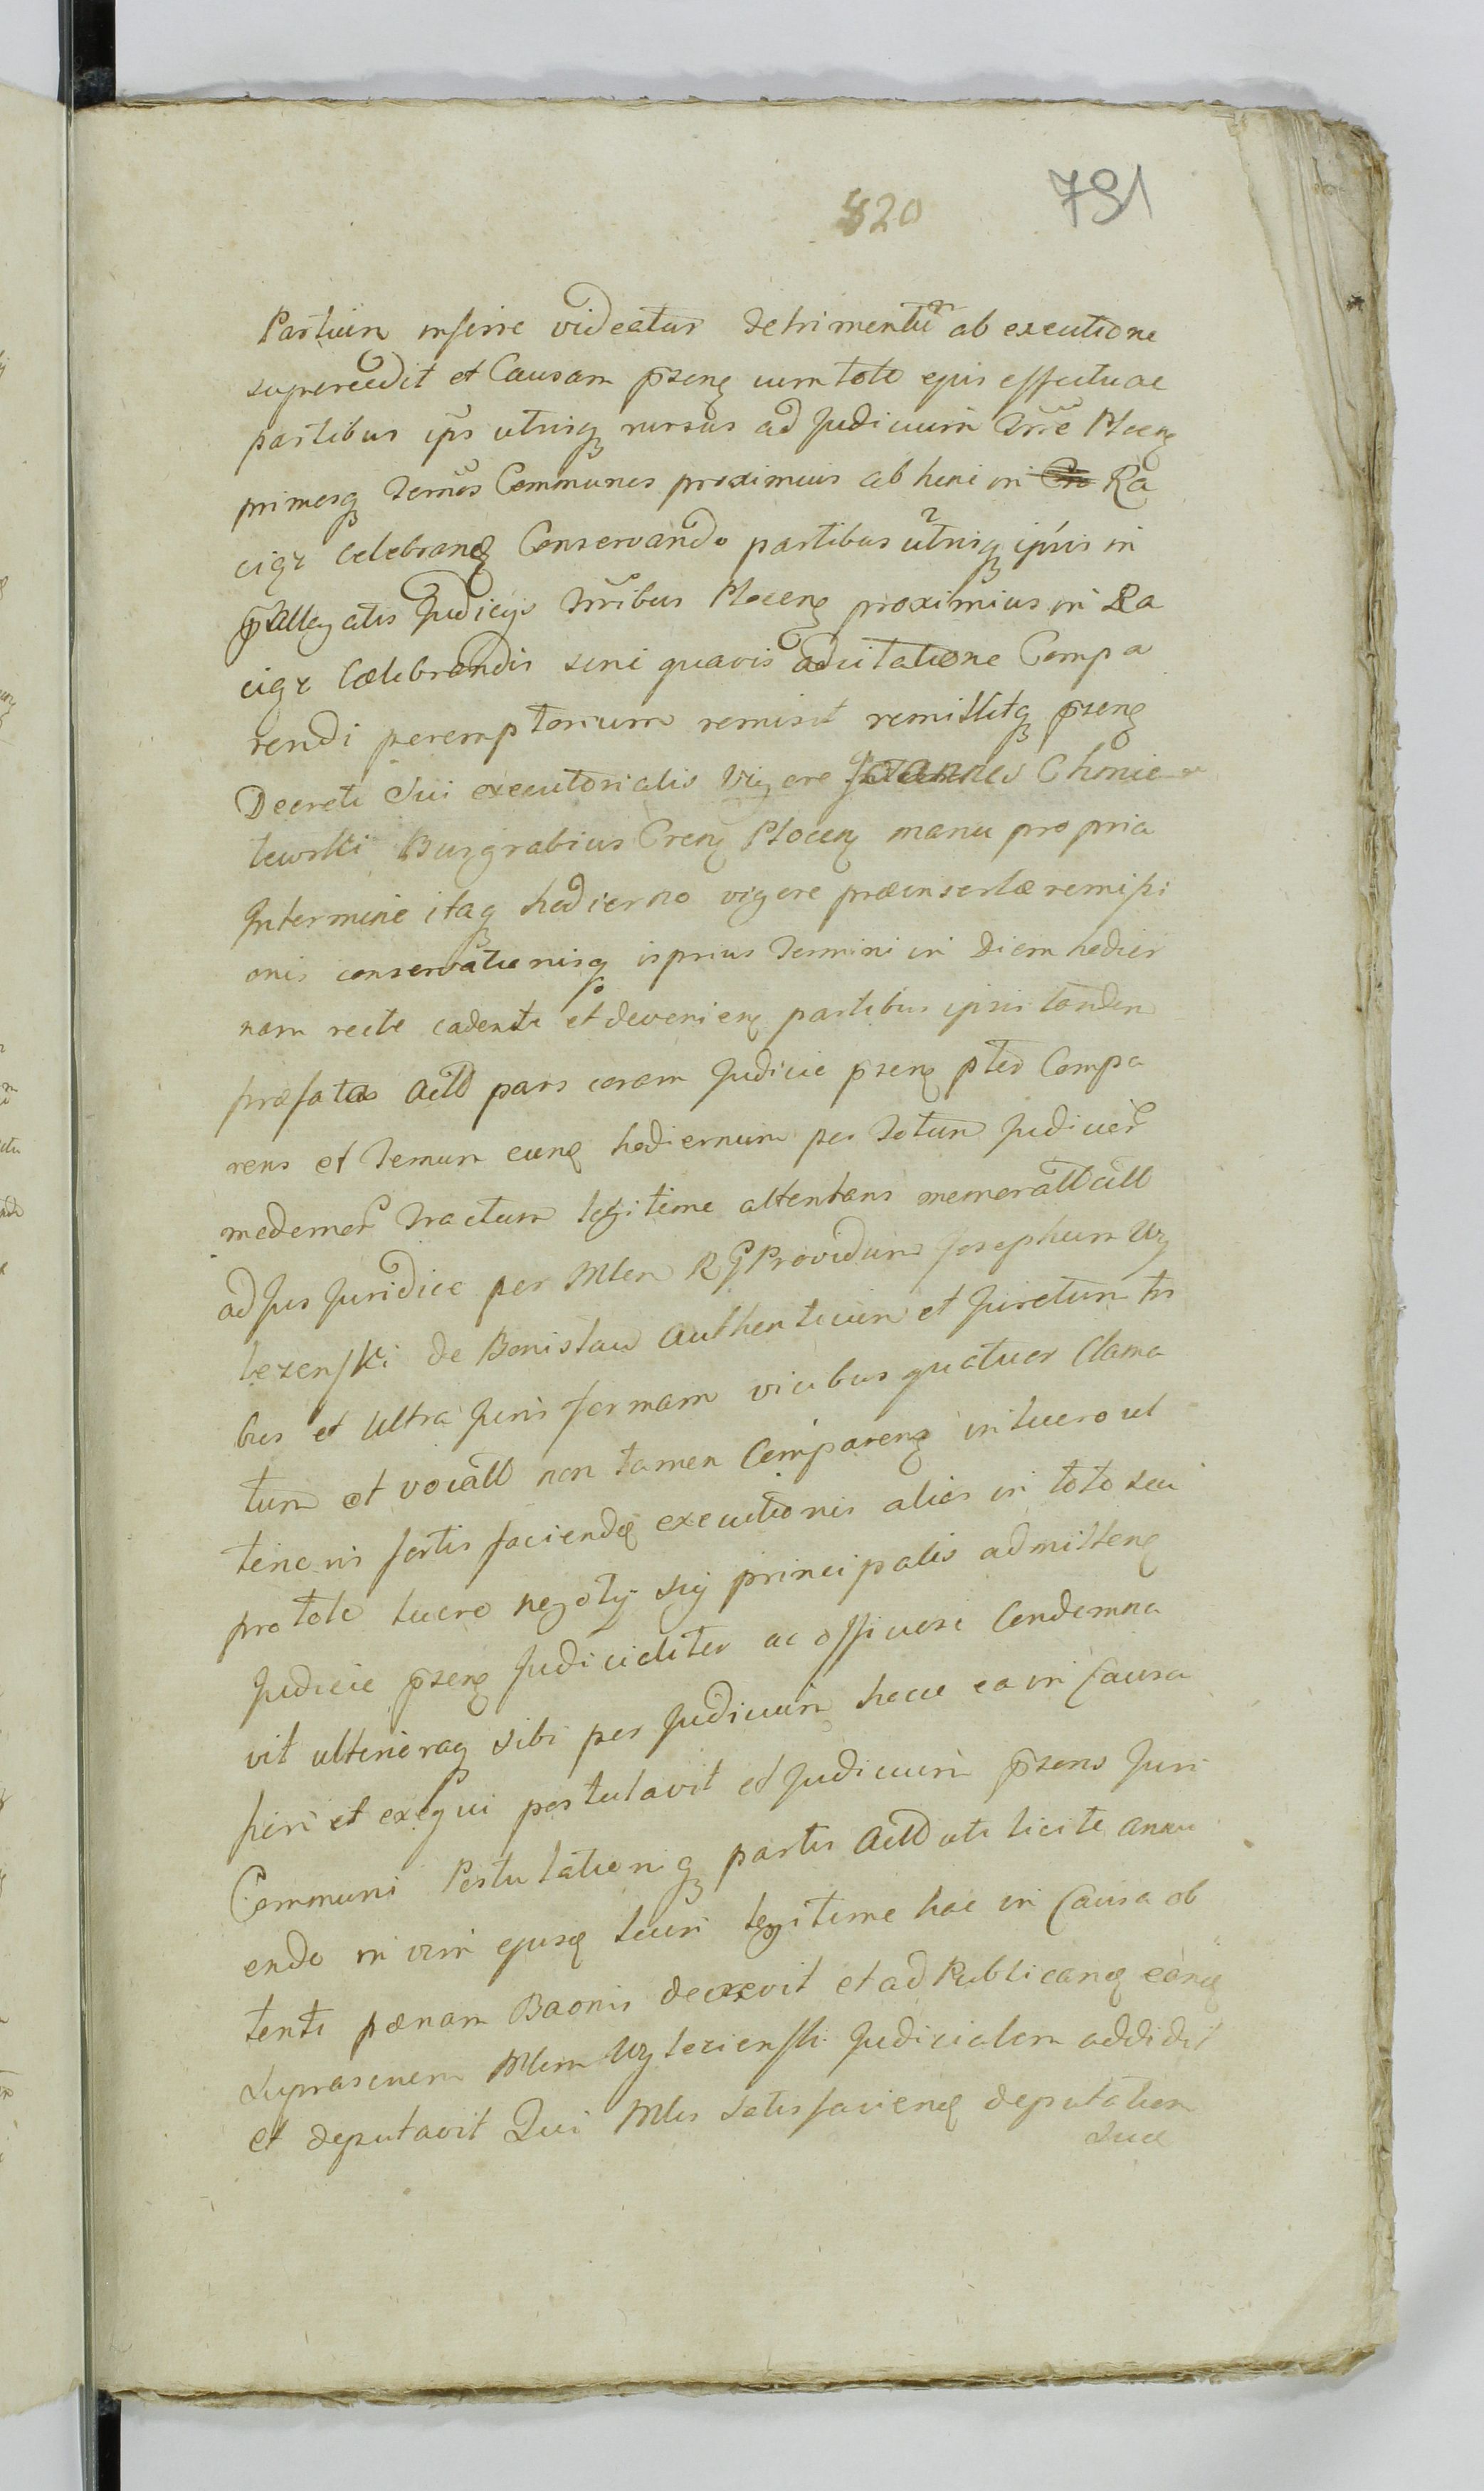 420 791
Partium inferre videatur detrimentũ ab executione
supercedit et Causam p̃zenę cum toto ejus effectu ac
partibus ip̃s utrisqȝ rursus ad Judicium Trr̃e Plocenę
primosqȝ Termos Communes proximius ab hinc in Ra
ciąz celebranę Conservando partibus utrisqȝ ipsis in
p̃allegatis Judicijs Trribus Plocenę proximius in Ra
ciąz Cælebrandis sine quavis adcitatione Compa
rendi peremptorium remisit remittitqȝ p̃zenę
Decreti Sui executorialis vigore Joannes Chonie
tewski Burgrabius Crenę Plocenę manu propria
In termine itaqȝ hodierno vigore præinsertæ remissi
onis conservationisqȝ ipsius Termini in Diem hodier
nam recte cadenti et devenienę partibus ipsis tanden
præfata Actõ pars coram Judicio p̃zenę pter Compa
rens et Termum eunę hodiernum per Totum Judicier
modernor Tractum legitime attentans memorattõ cittõ
ad Jus Juridice per Mlem RG Providum Josephum Uzy
lezenski de Bonislaw Authenticum et Juretum tri
bus et Ultra Juris formam vicibus quatuor Clama
tum et vocattõ non tamen Comparenę in lucro ut
tenoris sortis faciendę executionis alias in toto seu
pro toto lucro negotÿ sÿ principalis admittenę
Judicio p̃zenę Judicialiter ac officiose Condemna
vit ulterioraqȝ sibi per Judicium hocce ea in Causa
fieri et exequi postulavit et Judicium p̃zens Juri
Communi Postulationiqȝ partis Actõ uti licite annu
endo in vim ejusę lucri legitime hac in Causa ob
tenti pænam Baonis decrevit et ad Publicanę eanę
suprascriem Mlem Uzylecienski Judicialem addidit
et deputavit Qui Mles satisfacienę deputation
Suæ